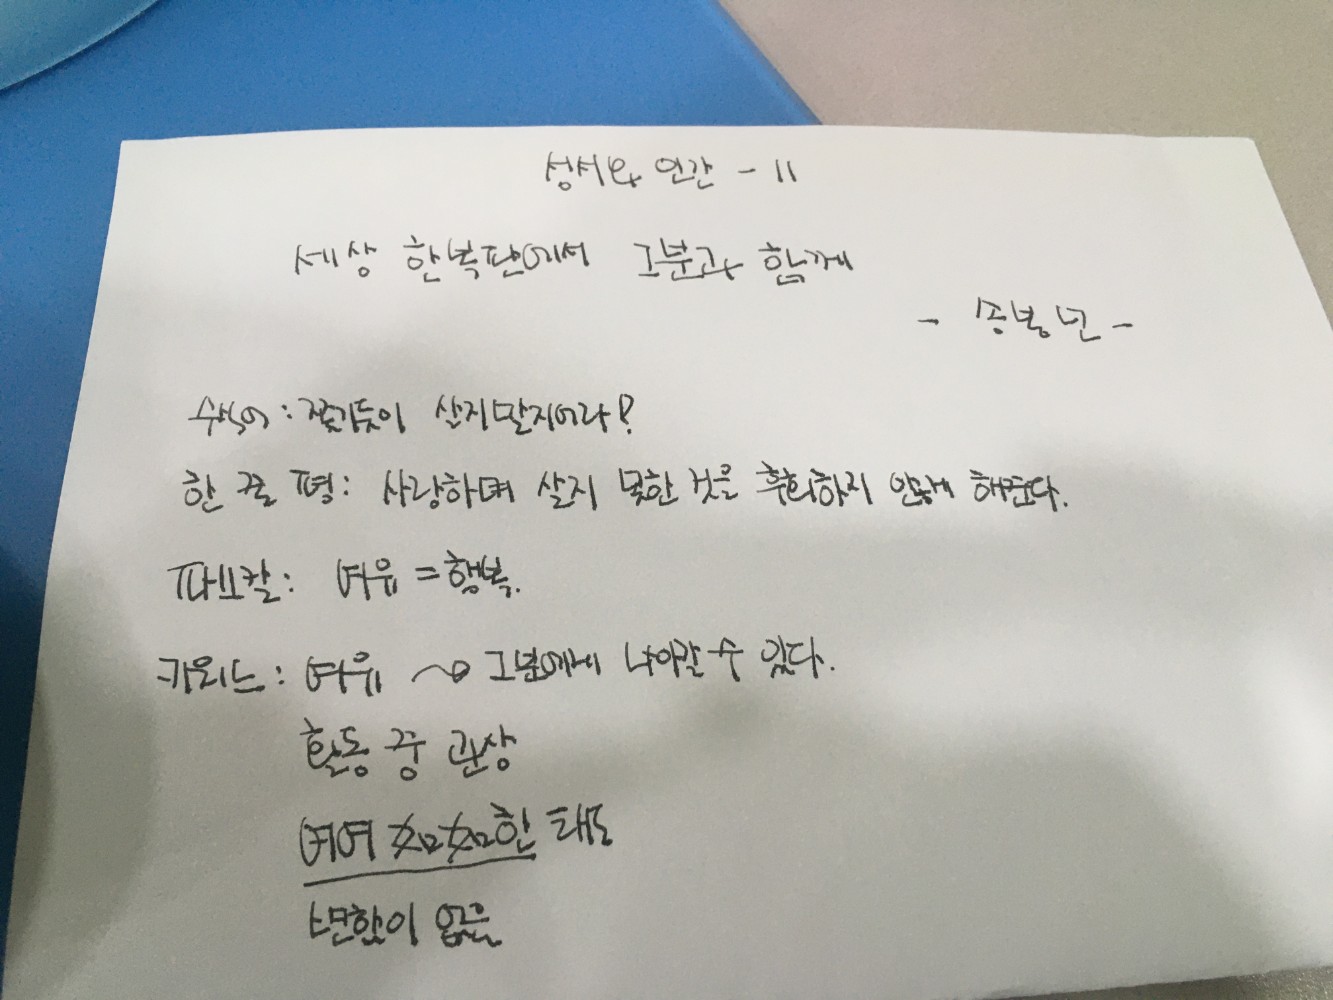 성서와 인간 - 11
세상 한복판에서 그분과 함께
- 송봉모 -
쫓기듯이 살지말지어라?
한 꼴 평: 사랑하며 살지 못한 것을 후회하지 않게 해준다.
파스칼: 여유 = 행복.
여유 ~> 그분에게 나아갈 수 있다.
활동 중 관상
여여 한 태도
변함이 없는